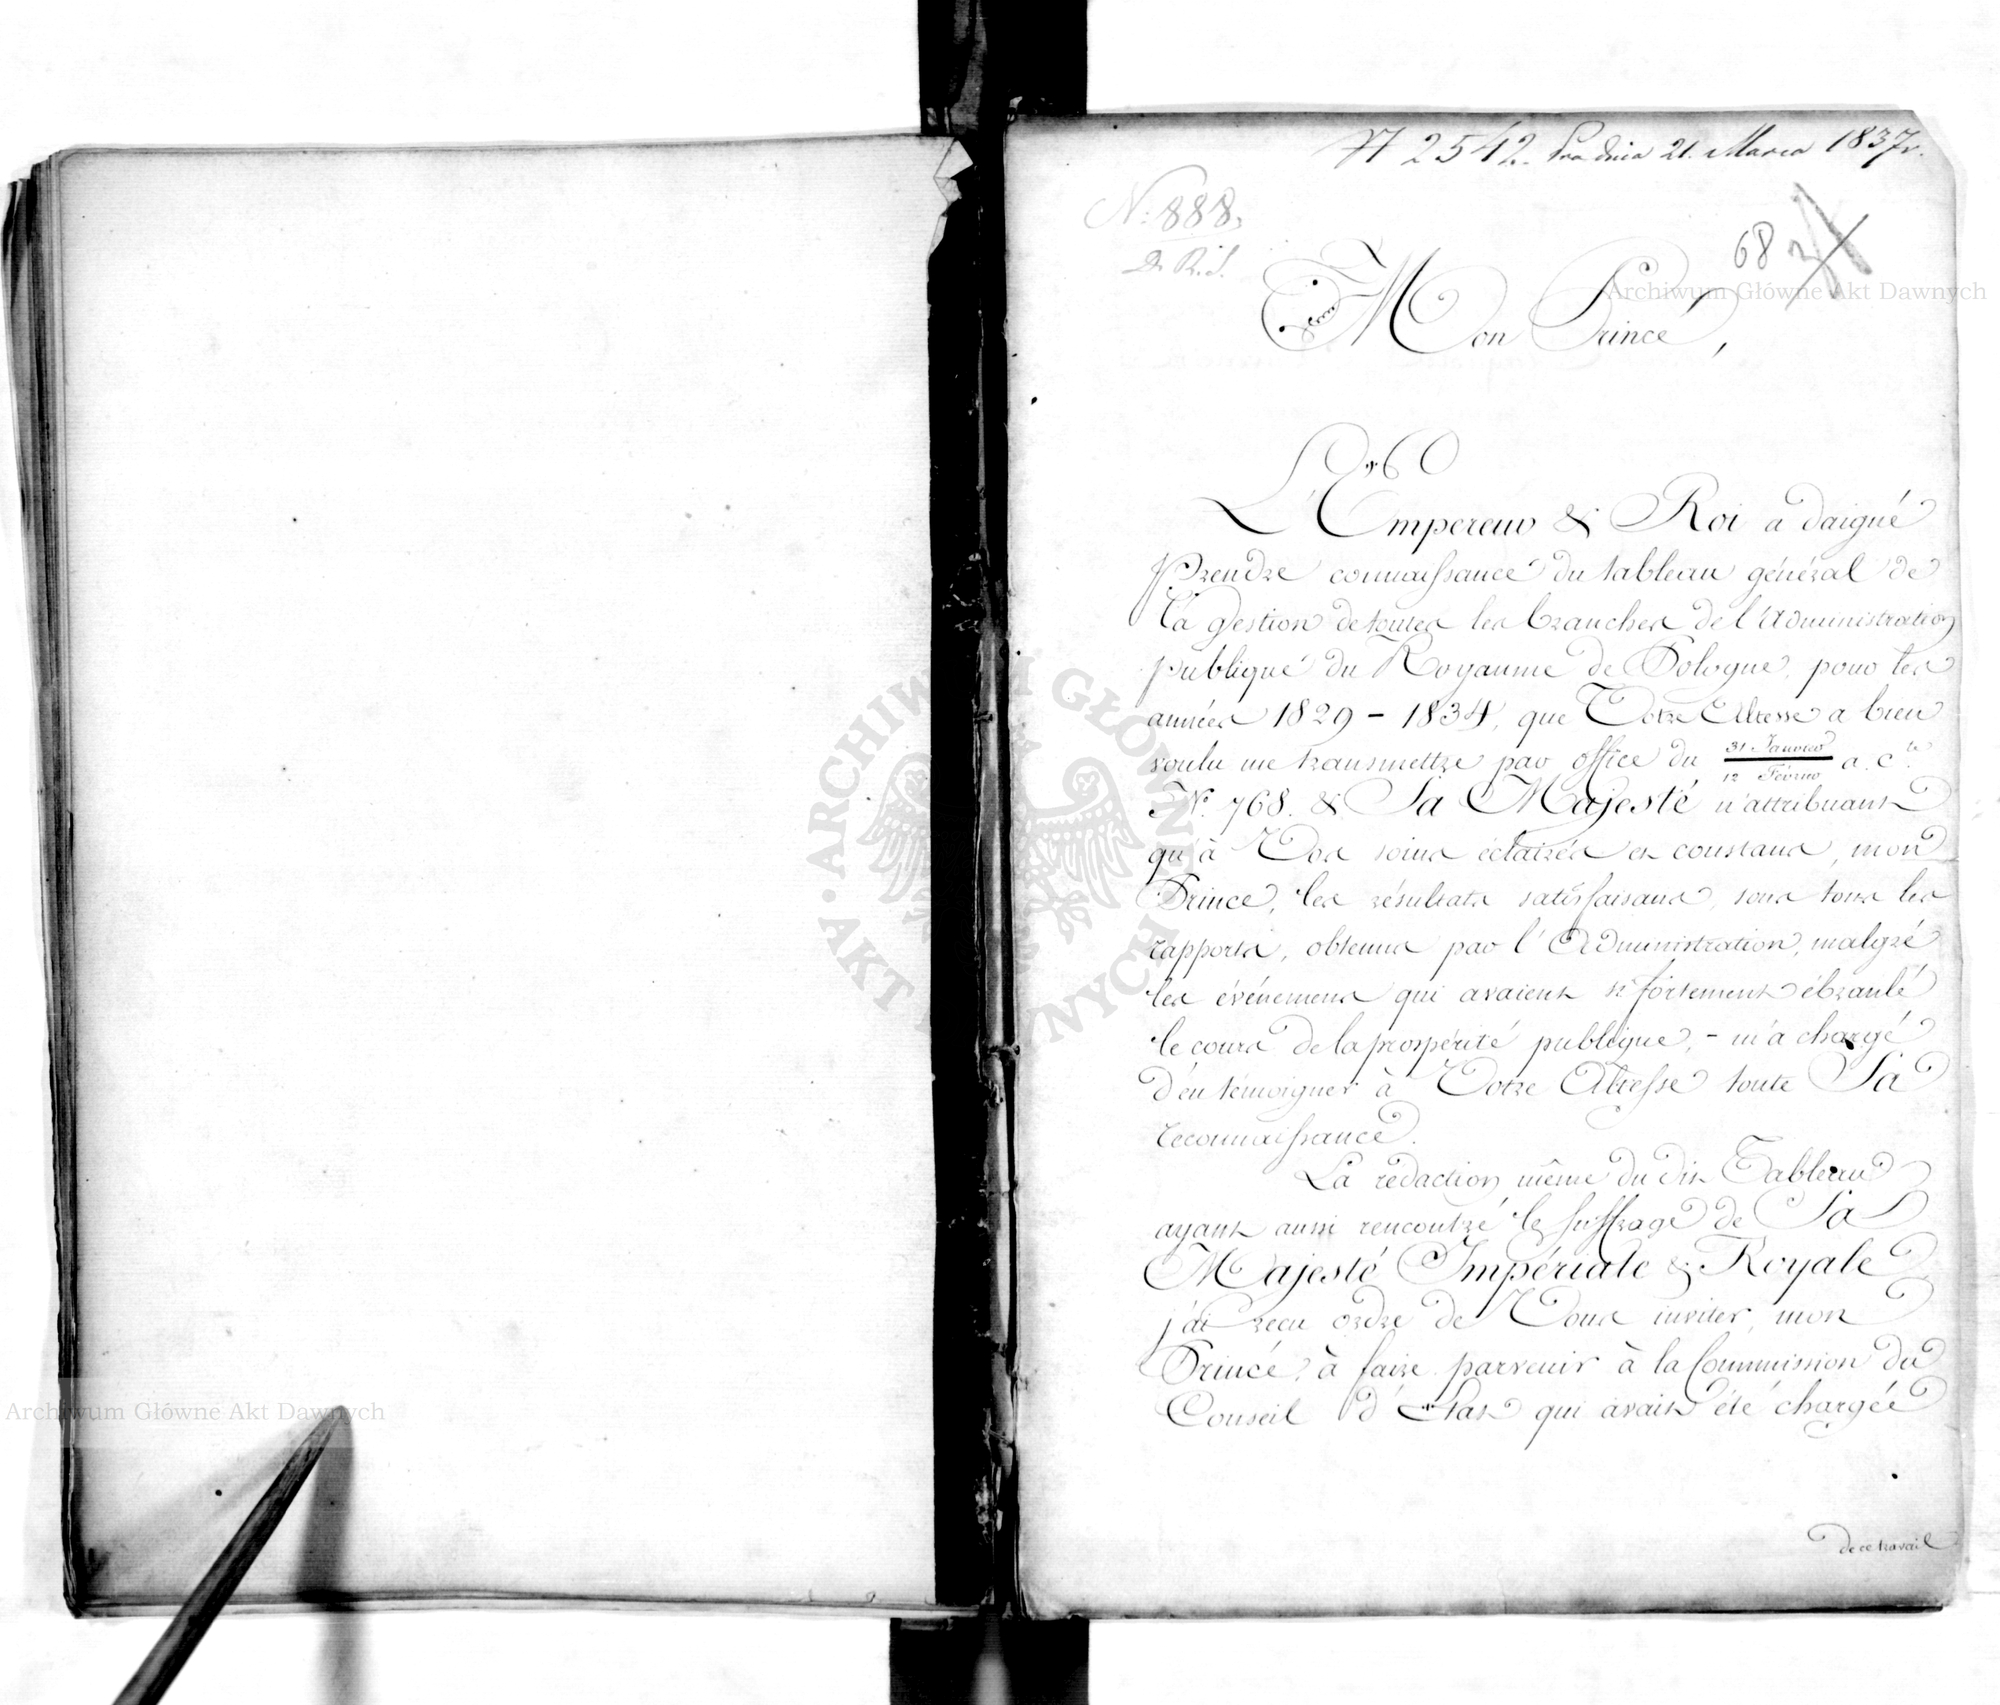 № 2542. Pra dnia 21. Marca 1837 r.
N: 888.
D. R. S.
68
Mon Prince,
L'Empereur & Roi a daigné
prendre connaissance du tableau général de
la gestion de toutes les branches de l'Administration
publique du Royaume de Pologne, pour les
années 1829 – 1834, que Votre Altesse a bien
voulu me transmettre par office du 31 Janvier / 12 Février a. c.te
No. 768. & Sa Majesté n'attribuant
qu'à Vos soins éclairés et constans, mon
Prince, les résultats satisfaisans, sous tous les
rapports, obtenus par l'Administration, malgré
les événemens qui avaient si fortement ébranlé
le cours de la prospérité publique, – m'a chargé
d'en témoigner à Votre Altesse toute Sa
reconnaissance.
La rédaction même du dit Tableau
ayant aussi rencontré le suffrage de Sa
Majesté Impériale & Royale
j'ai reçu ordre de Vous inviter, mon
Prince, à faire parvenir à la Commission du
Conseil d'Etat qui avait été chargée
de ce travail
Archiwum Główne Akt Dawnych
Archiwum Główne Akt Dawnych
ARCHIWUM GŁÓWNE AKT DAWNYCH